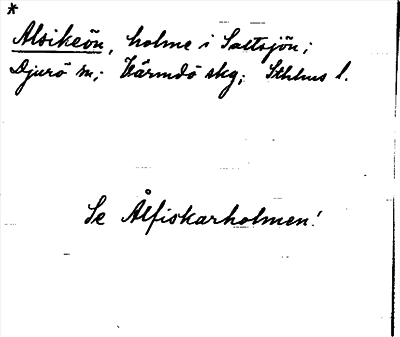 *
Alsikeön, holme i Saltsjön;
Djurö sn; Värmdö skg; Sthlms l.
Se Ålfiskarholmen!